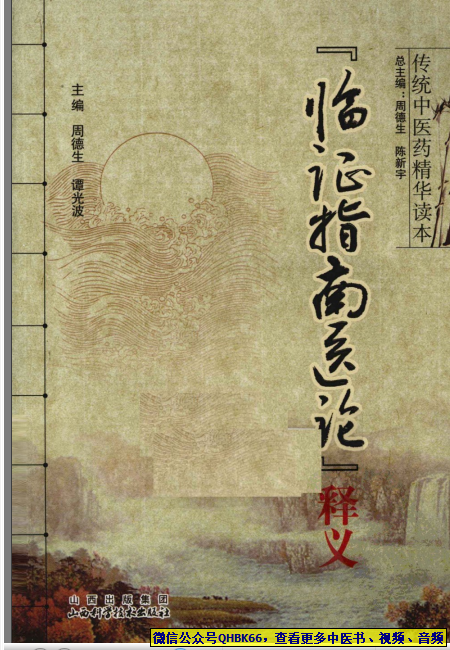 传统中医药精华读本
总主编：周德生 陈新宇
『临证指南医论』
释义
主编 周德生 谭光波
山西出版集团
山西科学技术出版社
微信公众号QHBK66，查看更多中医书、视频、音频